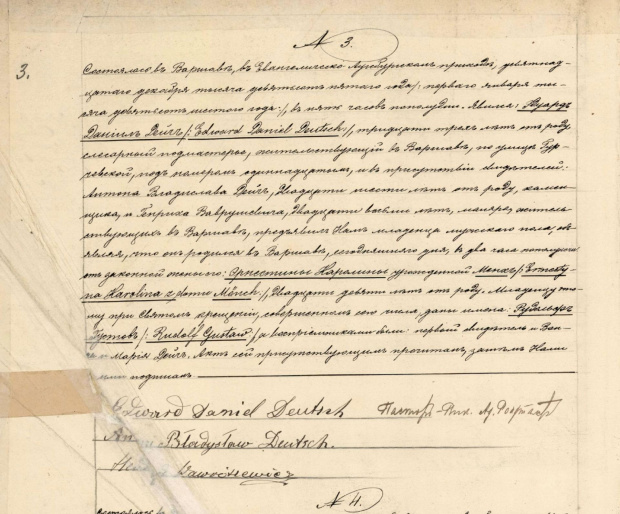 № 3.
3.
Состоялось въ Варшавѣ, въ Евангелическо-Аугсбургскомъ приходѣ, девятнад-
цатаго декабря тысяча девятьсотъ пятаго года /: перваго января ты-
сяча девятьсотъ шестого года :/, въ пять часовъ пополудни. Явился: Эдуардъ
Даніилъ Дейчъ /: Edward Daniel Deutsch :/, тридцати трехъ лѣтъ отъ роду
слесарный подмастерье, жительствующій въ Варшавѣ, по улицѣ Гур-
чевской, подъ номеромъ одиннадцатымъ, и въ присутствіи свидѣтелей:
Антона Владислава Дейчъ, двадцати шести лѣтъ отъ роду, камен-
щика, и Генриха Ваврушевича, двадцати восьми лѣтъ, маляра, житель-
ствующихъ въ Варшавѣ, предъявилъ Намъ младенца мужескаго пола, объ-
являя, что онъ родился въ Варшавѣ, сегодняшняго дня, въ два часа пополудни
отъ законной его жены: Эрнестины Каролины урожденной Менхъ /: Ernesty-
na Karolina z domu Mönch :/, двадцати девяти лѣтъ отъ роду. Младенцу это-
му при Святомъ крещеніи, совершенномъ сего числа, даны имена: Рудольфъ
Густавъ /: Rudolf Gustaw :/, а воспріемниками были: первый свидѣтель и
Марія Дейчъ. Актъ сей присутствующимъ прочитанъ, затѣмъ Нами
и ими подписанъ.
Edward Daniel Deutsch Пасторъ-
Władysław Deutsch.
Wawruszewicz
№ 4.